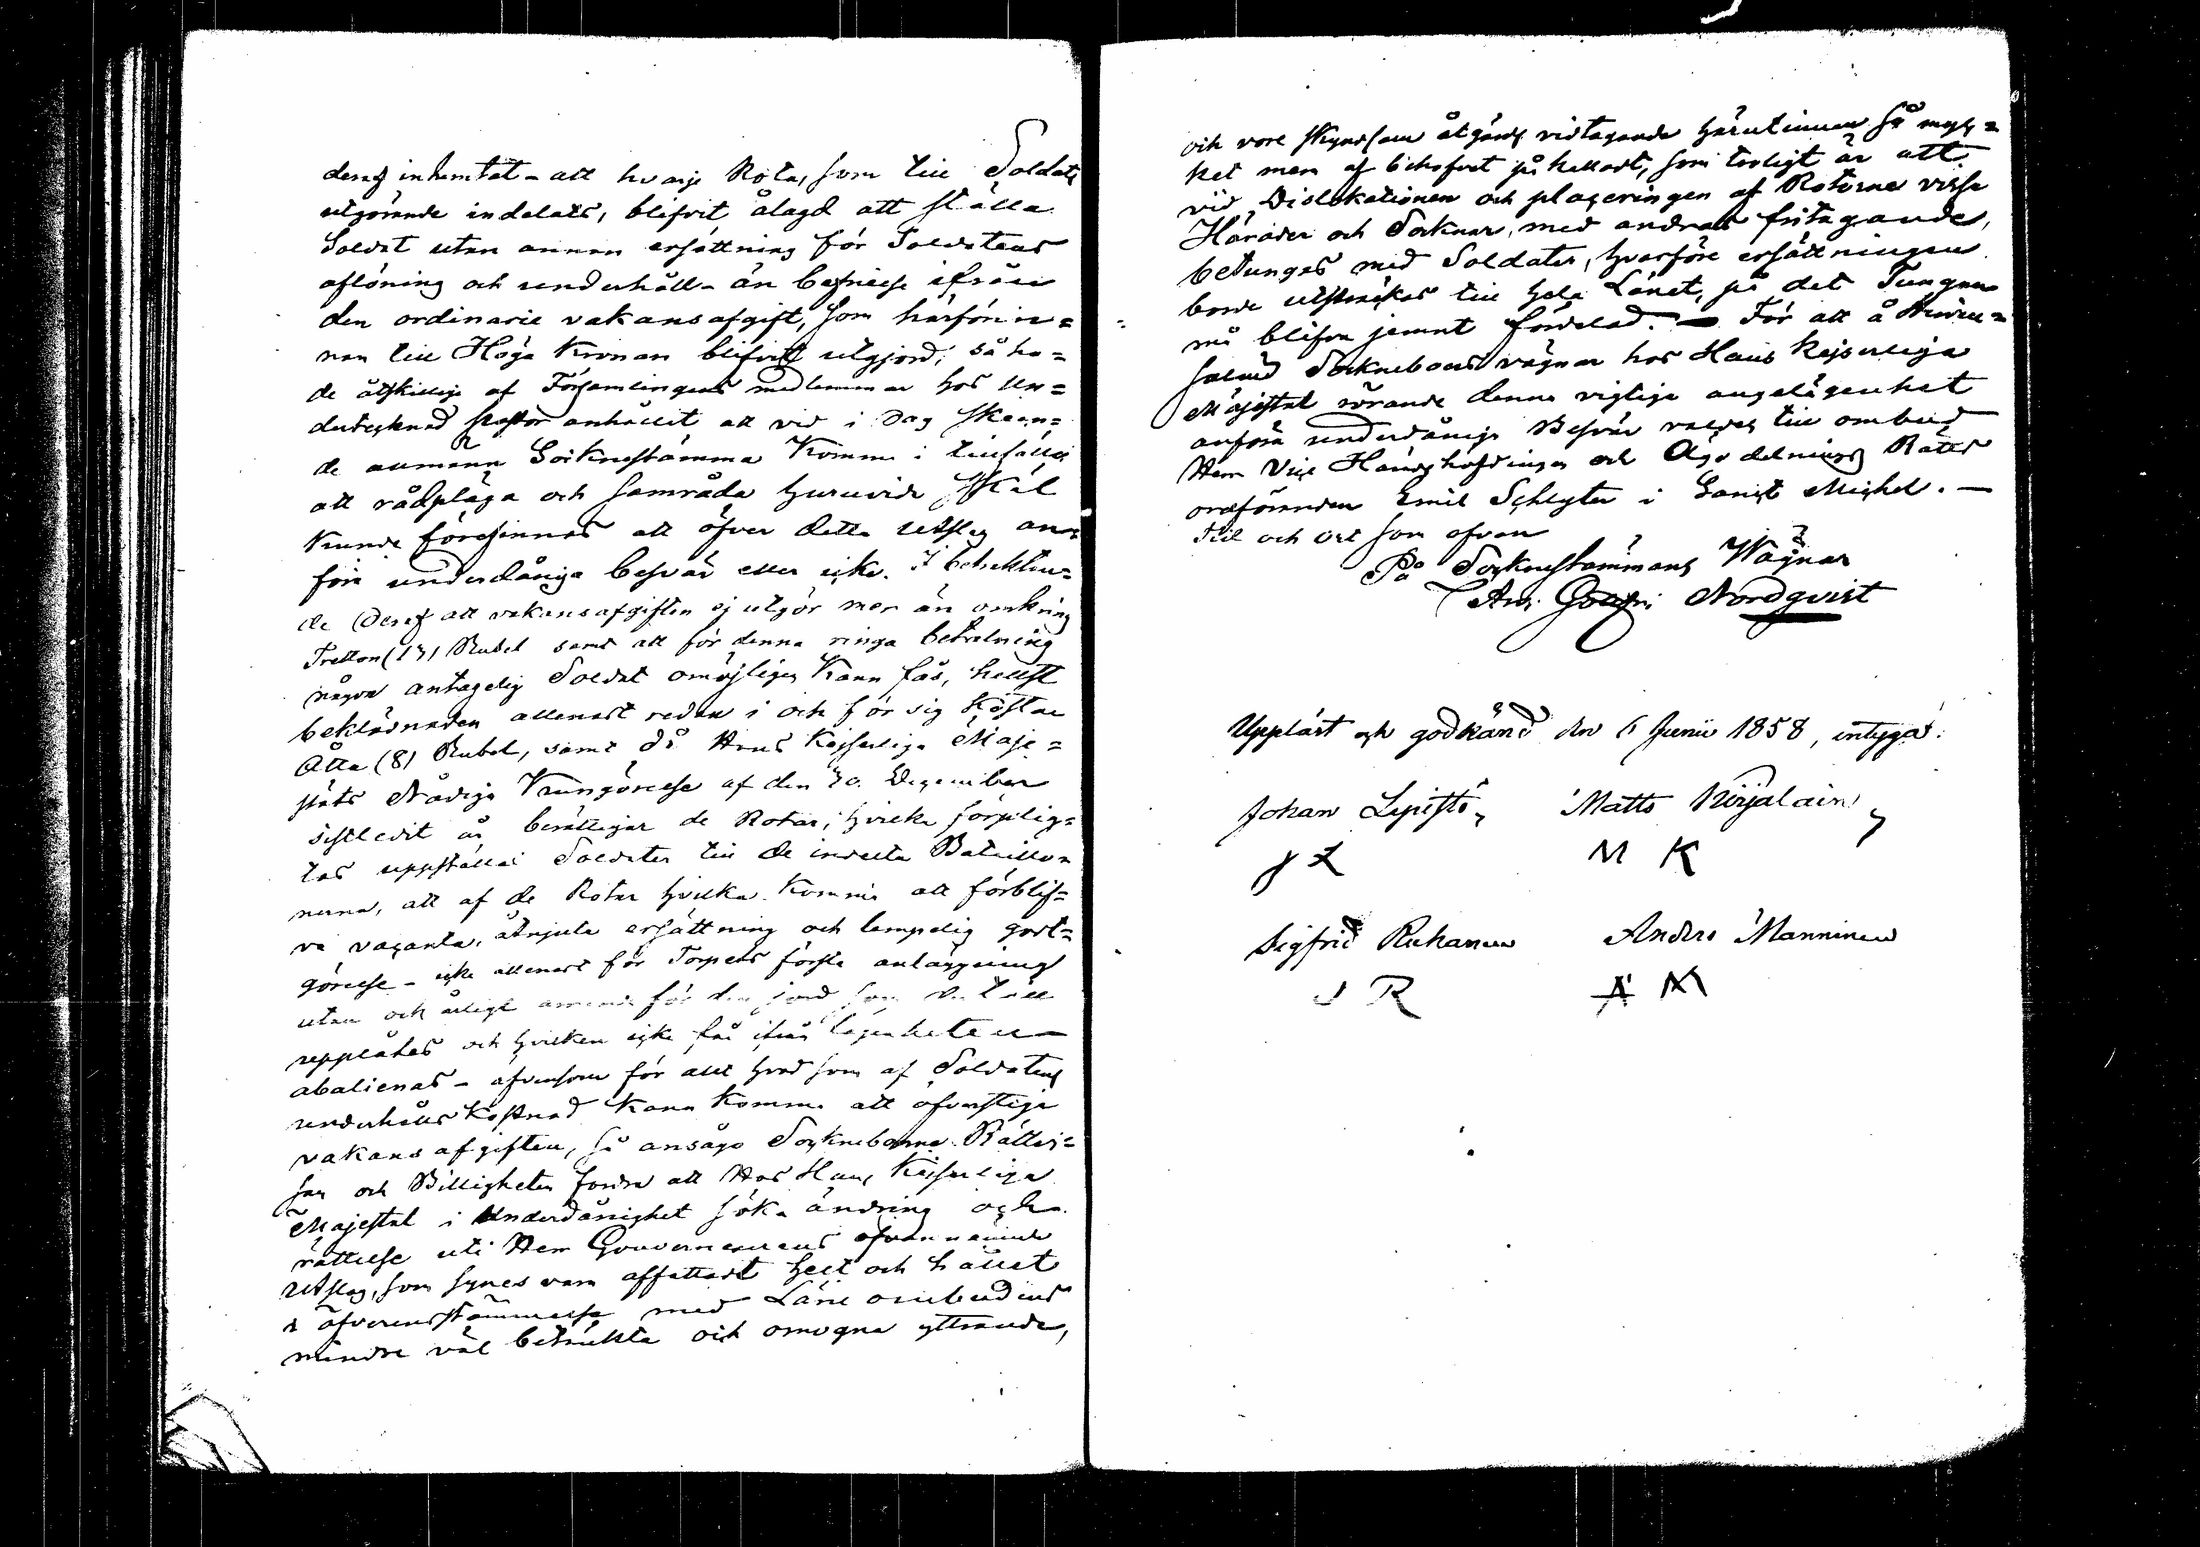 deraf inhemtat – att hvarje Rota, som till Soldats
utgörande indelats, blifvit ålagd att ställa
Soldat utan annan ersättning för Soldatens
aflöning och underhåll – än befrielse ifrån
den ordinarie vakansafgift, som härförin=
nan till Höga Kronan blifvit utgjord; så ha=
de åtskillige af Församlingens medlemmar hos un=
dertecknad Pastor anhållit att vid i dag skeen=
de allmänn Socknestämma komma i tillfälle
att rådpläga och samråda huruvida skäl
kunde förefinnas att öfver detta utslag an=
föra underdåniga besvär eller icke. I betraktan=
de deraf att vakansafgiften ej utgör mer än omkring
Tretton (13) Rubel samt att för denna ringa betalning
någon antagelig Soldat omöjligen kann fås, hellst
beklädnaden allenast redan i och för sig kostar
Åtta (8) Rubel, samt då Hans Kejserliga Maje=
stäts Nådiga Kungörelse af den 30 December
sistledit år berättigar de Rotar, hvilka förplig=
tas uppställa Soldater till de indelta Bataillo=
nerna, att af de Rotar hvilka komma att förblif=
va vaqanta, åtnjuta ersättning och lempelig godt=
görelse – icke allenast för Torpets första anläggning
utan och årligt arrende för den jord som dertill
upplåtes och hvilken icke får ifrån lägenheten
abalienas – äfvensom för allt hvad som af Soldatens
underhålls kostnad kann komma att öfverstiga
vakansafgiften, så ansågo Sockneboerne Rättvi=
san och Billigheten fordra att hos Hans Kejserliga
Majestät i Underdånighet söka ändring och
rättelse uti Herr Gouverneurens ofvannämnde
Utslag, som synes vara affattadt helt och hållet
i öfverensstämmelse med Läne ombudens
mindre väl betänkta och omogna yttrande,
och vore skyndsam åtgärds vidtagande härutinnan så myc=
ket mera af behofvet påkalladt, som troligt är att
vid Dislokationen och placeringen af Rotorna vissa
Härader och Socknar, med andras fritagande,
betungas med Soldater, hvarföre ersättningen
borde utsträckas till hela Länet, på det Tungan
må blifva jemnt fördelad. — För att å
Sockneboernes vägnar hos Hans Kejserliga
Majestät rörande denna vigtiga angelägenhet
anföra underdåniga Besvär valdes till ombud
Herr Vice Häradshöfdingen och Ägodelnings Rätts
ordföranden Emil Schlyter i Sanct Michel. —
Tid och ort som ofvan
På Socknestämmans Vägnar
Nordqvist
Uppläst och godkänd den 6 Junii 1858, intyga:
Johan Lepistö, Matts Kirjalain,
J L M K
Sigfrid Rukanen Anders Manninen
S R A M